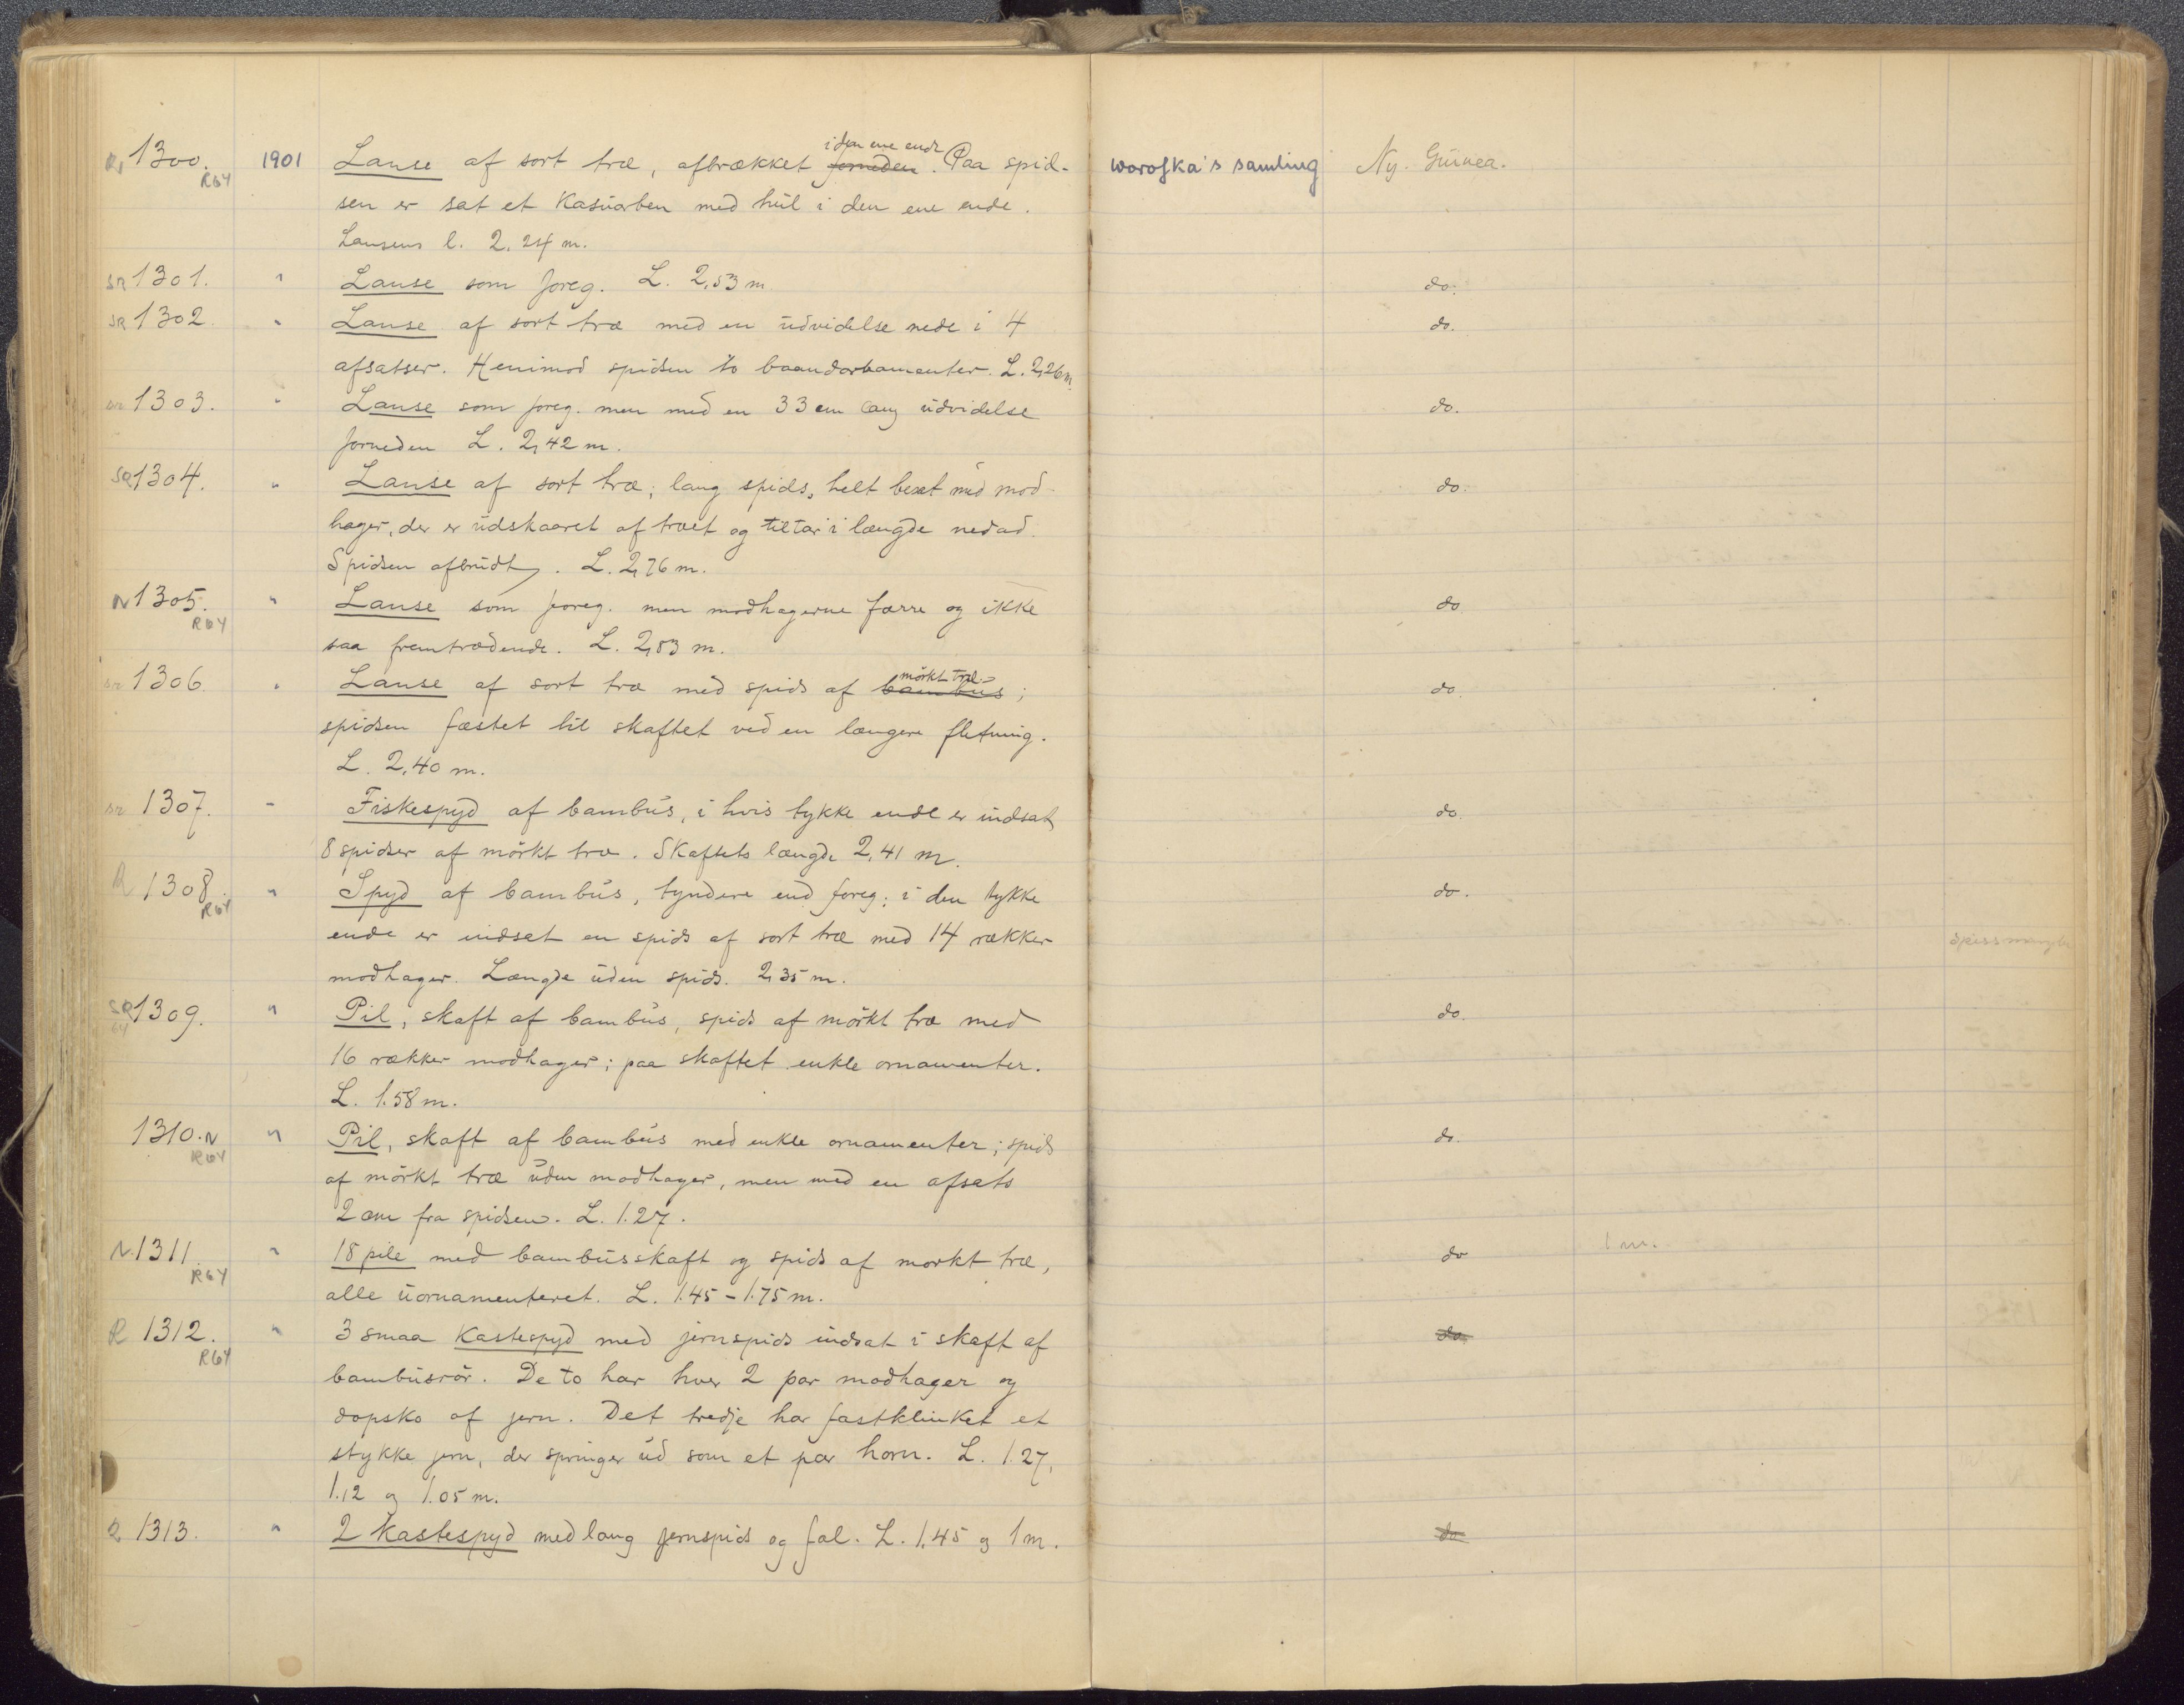 1300. R64 1901 Lanse af sort træ, afbrækket forneden i den ene ende. Paa spid- Worofka's samling Ny. Guinea.
sen er sat et Kasuarben med hul i den ene ende.
Lansens l. 2.24 m.
SR 1301. " Lanse som foreg. L. 2,53 m. do.
SR 1302. " Lanse af sort træ med en udvidelse nede i 4 do.
afsatser. Henimod spidsen to baandornamenter. L. 2,26 m.
SR 1303. " Lanse som foreg. men med en 33 cm lang udvidelse do.
forneden L. 2,42 m.
SR 1304. " Lanse af sort træ; lang spids, helt besat med mod- do.
hager, der er udskaaret af træet og tiltar i længde nedad.
Spidsen afbrudt. L. 2,76 m.
N 1305. R64 " Lanse som foreg. men modhagerne færre og ikke do.
saa fremtrædende. L. 2,83 m.
SR 1306. " Lanse af sort træ med spids af bambus mörkt træ; do.
spidsen fæstet til skaftet ved en længere fletning.
L. 2,40 m.
SR 1307. " Fiskespyd af bambus, i hvis tykke ende er indsat do.
8 spidser af mörkt træ. Skaftets længde 2,41 m.
R 1308. R64 " Spyd af bambus, tyndere end foreg; i den tykke do.
ende er indsat en spids af sort træ med 14 rækker spiss mangler
modhager. Længde uden spids. 2,35 m.
SR 64 1309. " Pil, skaft af bambus, spids af mörkt træ med do.
16 rækker modhager; paa skaftet enkle ornamenter.
L. 1.58 m.
1310. N R64 " Pil, skaft af bambus med enkle ornamenter; spids do.
af mörkt træ uden modhager, men med en afsats
2 cm fra spidsen. L. 1.27.
N. 1311. R64 " 18 pile med bambusskaft og spids af morkt træ, do 1 m.
alle uornamenteret. L. 1.45 - 1.75 m.
R 1312. R64 " 3 smaa Kastespyd med jernspids indsat i skaft af do.
bambusrör. De to har hver 2 par modhager og
dopsko af jern. Det tredje har fastklinket et
stykke jern, der springer ud som et par horn. L. 1.27,
1.12 og 1.05 m.
R 1313. " 2 Kastespyd med lang jernspids og fal. L. 1.45 og 1 m. do